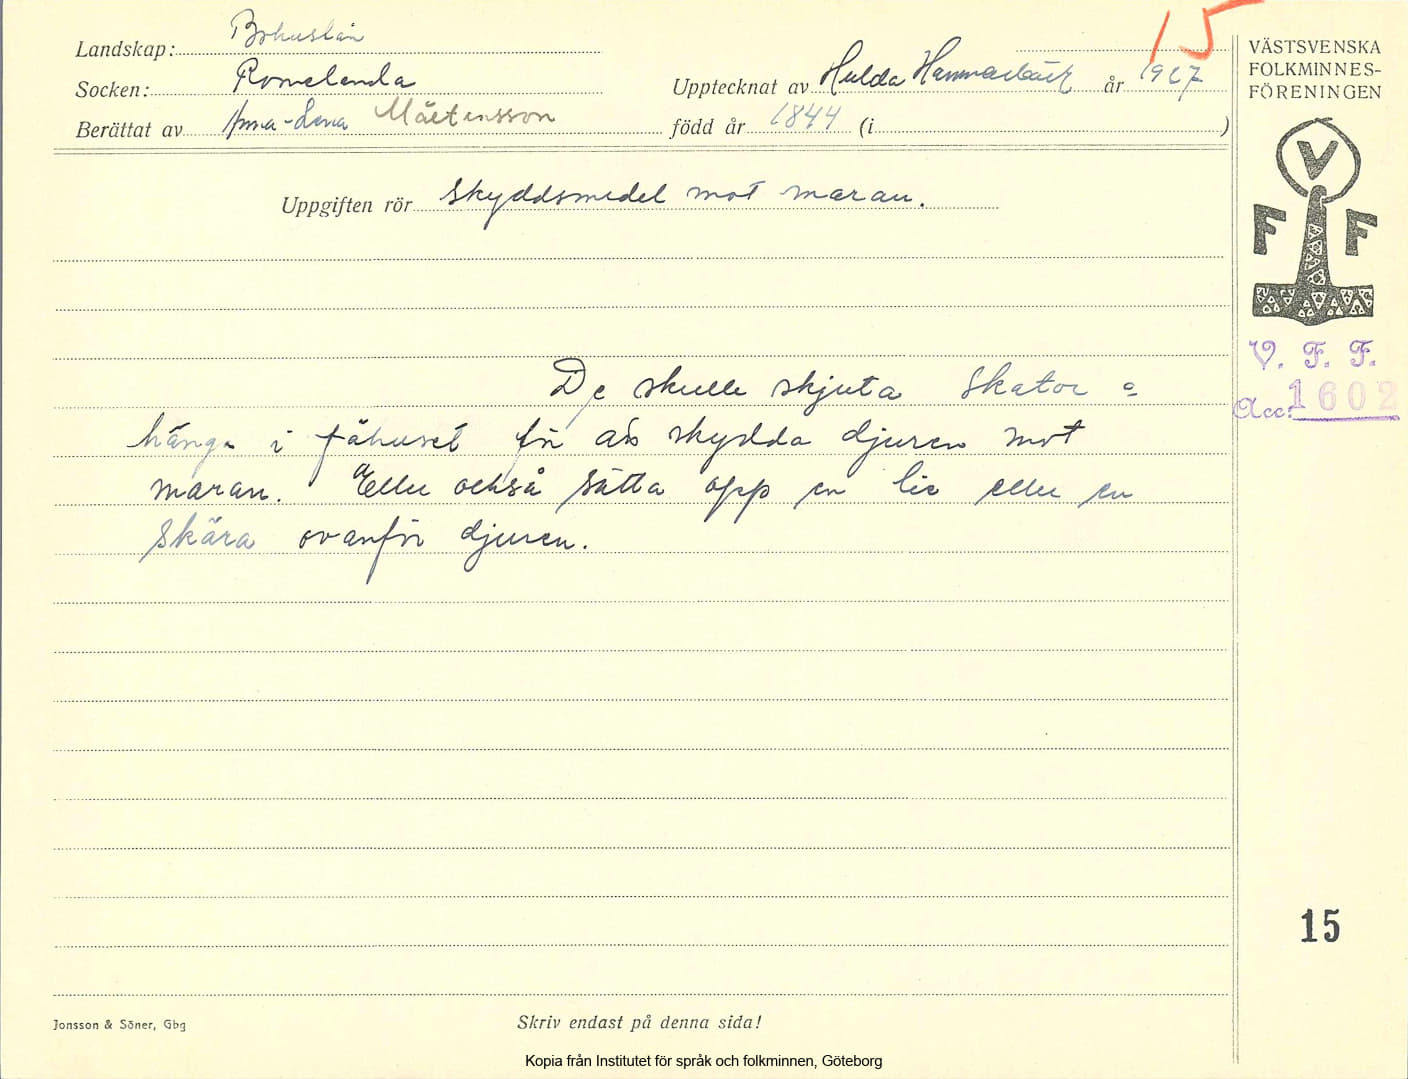 15
Landskap: Bohuslän
Socken: Romelanda
Upptecknat av Hulda Hammarbäck år 1927
Berättat av Anna-Lena Mårtensson född år 1844 (i )
Uppgiften rör Skyddsmedel mot maran.
De skulle skjuta skator o
hänga i fähuset för att skydda djuren mot
maran. Eller också sätta opp en lie eller en
skära ovanför djuren.
VÄSTSVENSKA
FOLKMINNES-
FÖRENINGEN
V
F F
V. F. F.
Acc: 1602
15
Jonsson & Söner, Gbg
Skriv endast på denna sida!
Kopia från Institutet för språk och folkminnen, Göteborg